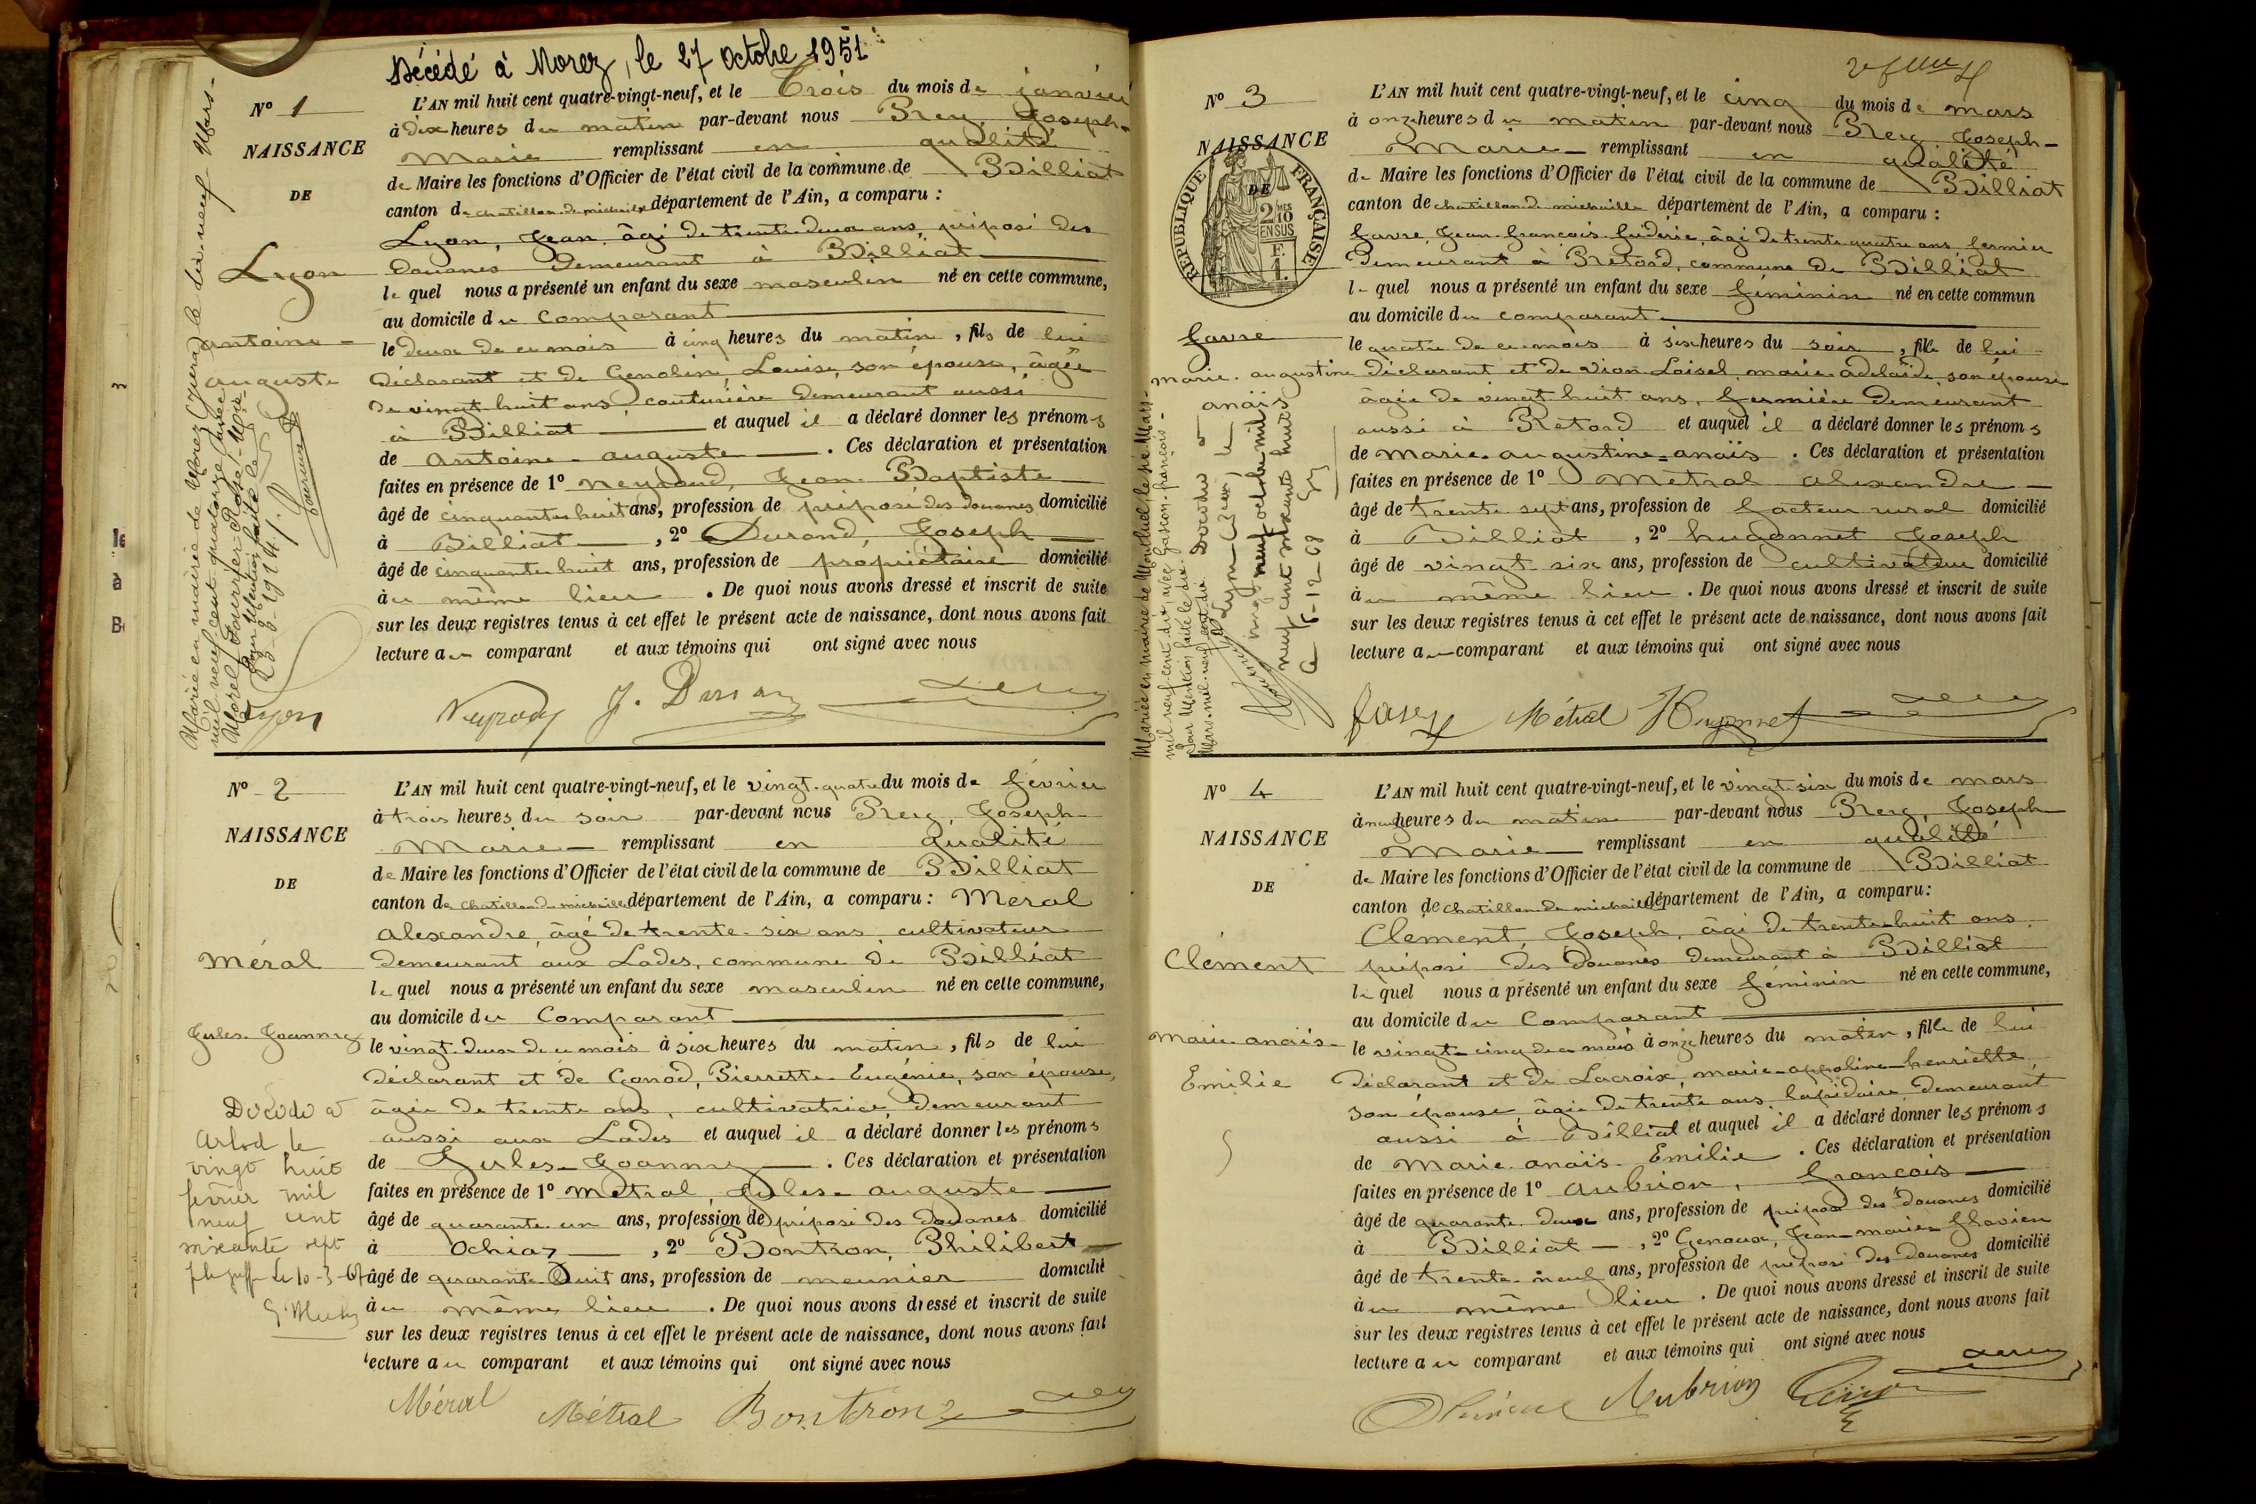 Décédé à Morez, le 27 Octobre 1951
N° 1
NAISSANCE
DE
Lyon
antoine-
auguste
Mariée en mairie de Morez (Jura) le dix-neuf Mars-
mil neuf cent quatorze avec
Morel Fourrier Rose-
Pour Mention faite le
L'AN mil huit cent quatre-vingt-neuf, et le Trois du mois de janvier
à dix heures du matin par-devant nous Prey, Joseph-
Marie remplissant en qualité
de Maire les fonctions d'Officier de l'état civil de la commune de Billiat
canton de chatillon de michaille département de l'Ain, a comparu :
Lyon, Jean, âgé de trente deux ans, préposé des
douanes demeurant à Billiat
lequel nous a présenté un enfant du sexe masculin né en cette commune,
au domicile du Comparant
le deux de ce mois à cinq heures du matin, fils de lui
déclarant et de Genolin, Louise, son épouse, âgée
de vingt huit ans, couturière demeurant aussi
à Billiat et auquel il a déclaré donner les prénoms
de antoine-auguste. Ces déclaration et présentation
faites en présence de 1° Neyroud, Jean-Baptiste
âgé de cinquante huit ans, profession de préposé des douanes domicilié
à Billiat, 2° Durand, Joseph
âgé de cinquante huit ans, profession de propriétaire domicilié
au même lieu. De quoi nous avons dressé et inscrit de suite
sur les deux registres tenus à cet effet le présent acte de naissance, dont nous avons fait
lecture au comparant et aux témoins qui ont signé avec nous
Lyon J. Durand
N° 2
NAISSANCE
DE
Méral
Jules-Joanny
Décédé à
Arlod le
vingt huit
février mil
neuf cent
soixante sept
L'AN mil huit cent quatre-vingt-neuf, et le vingt-quatre du mois de février
à trois heures du soir par-devant nous Prey, Joseph-
Marie- remplissant en qualité
de Maire les fonctions d'Officier de l'état civil de la commune de Billiat
canton de chatillon de michaille département de l'Ain, a comparu : Méral
Alexandre, âgé de trente-six ans, cultivateur
demeurant aux Lades, commune de Billiat
lequel nous a présenté un enfant du sexe masculin né en cette commune,
au domicile du Comparant
le vingt-deux de ce mois à six heures du matin, fils de lui
déclarant et de Gonod, Pierrette-Eugénie, son épouse,
âgée de trente ans, cultivatrice, demeurant
aussi aux Lades et auquel il a déclaré donner les prénoms
de Jules-Joanny. Ces déclaration et présentation
faites en présence de 1° Métral, Jules-auguste
âgé de quarante-un ans, profession de préposé des douanes domicilié
à Ochiaz, 2° Bontron, Philibert
âgé de quarante huit ans, profession de meunier domicilié
au même lieu. De quoi nous avons dressé et inscrit de suite
sur les deux registres tenus à cet effet le présent acte de naissance, dont nous avons fait
lecture au comparant et aux témoins qui ont signé avec nous
Méral Métral Bontron
N° 3
NAISSANCE
DE
RÉPUBLIQUE FRANÇAISE
2/10 EN SUS
F. 1.
favre
marie-augustine
anaïs
Mariée en mairie de Montluel le sept Mars-
mil neuf cent dix, avec
Décédée à
Lyon
neuf octobre mil
neuf cent soixante huit
le 6-12-68
L'AN mil huit cent quatre-vingt-neuf, et le cinq du mois de mars
à onze heures du matin par-devant nous Prey, Joseph-
Marie- remplissant en qualité
de Maire les fonctions d'Officier de l'état civil de la commune de Billiat
canton de chatillon de michaille département de l'Ain, a comparu :
favre, Jean-françois-fréderic, âgé de trente quatre ans, fermier
demeurant à Retord, commune de Billiat
lequel nous a présenté un enfant du sexe féminin né en cette commun
au domicile du comparant
le quatre de ce mois à six heures du soir, fille de lui
déclarant et de Vion-Loisel, marie-adelaïde, son épouse
âgée de vingt huit ans, fermière demeurant
aussi à Retord et auquel il a déclaré donner les prénoms
de marie-augustine-anaïs. Ces déclaration et présentation
faites en présence de 1° Métral alexandre
âgé de trente sept ans, profession de facteur rural domicilié
à Billiat, 2° hugonnet Joseph
âgé de vingt-six ans, profession de cultivateur domicilié
au même lieu. De quoi nous avons dressé et inscrit de suite
sur les deux registres tenus à cet effet le présent acte de naissance, dont nous avons fait
lecture au comparant et aux témoins qui ont signé avec nous
favre Métral Hugonnet
N° 4
NAISSANCE
DE
Clément
Marie anaïs-
Emilie
L'AN mil huit cent quatre-vingt-neuf, et le vingt-six du mois de mars
à neuf heures du matin par-devant nous Prey, Joseph
Marie remplissant en qualité
de Maire les fonctions d'Officier de l'état civil de la commune de Billiat
canton de chatillon de michaille département de l'Ain, a comparu :
Clément, Joseph, âgé de trente-huit ans
préposé des douanes demeurant à Billiat
lequel nous a présenté un enfant du sexe féminin né en cette commune,
au domicile du Comparant
le vingt-cinq de ce mois à onze heures du matin, fille de lui
déclarant et de Lacroix, marie-appoline-henriette
son épouse âgée de trente ans lapidaire demeurant
aussi à Billiat et auquel il a déclaré donner les prénoms
de Marie-anaïs-Emilie. Ces déclaration et présentation
faites en présence de 1° Aubrion, françois
âgé de quarante-deux ans, profession de préposé des douanes domicilié
à Billiat, 2° Genoux, Jean-marie-flavien
âgé de trente-neuf ans, profession de préposé des douanes domicilié
au même lieu. De quoi nous avons dressé et inscrit de suite
sur les deux registres tenus à cet effet le présent acte de naissance, dont nous avons fait
lecture au comparant et aux témoins qui ont signé avec nous
Clément Aubrion